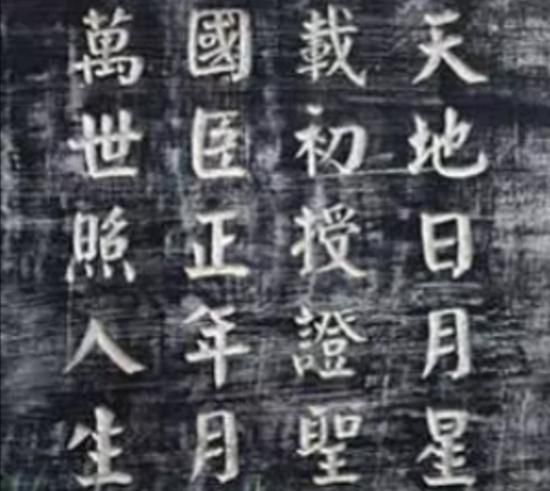 天地日月星
載初授證聖
國臣正年月
萬世照人生